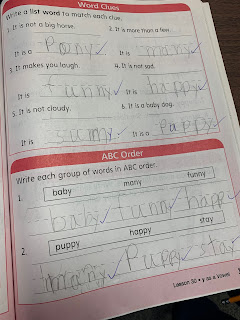 Word Clues
Write a list word to match each clue.
1. It is not a big horse.
2. It is more than a few.
It is a pony
It is many
3. It makes you laugh.
4. It is not sad.
It is funny
It is happy
5. It is not cloudy.
6. It is a baby dog.
It is sunny
It is a puppy
ABC Order
Write each group of words in ABC order.
1. baby many funny
baby funny happ
2. puppy happy stay
many Puppy stay
Lesson 30 • y as a Vowel